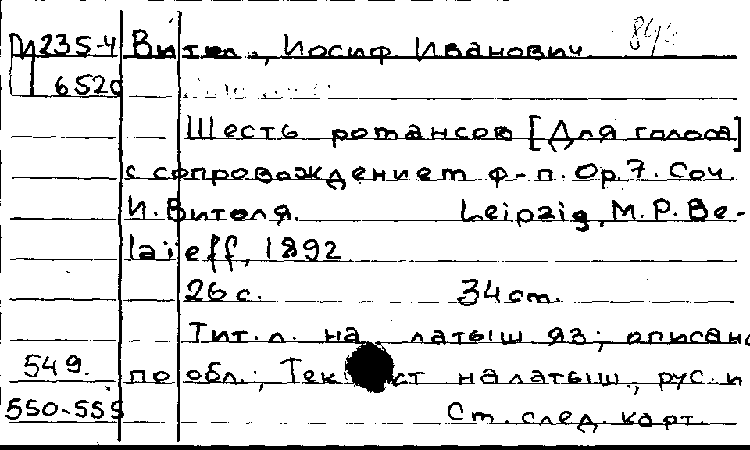 И235-4 Витол., Иосиф Иванович
6520
Шесть романсов [Для голоса]
с сопровождением ф-п. Ор.7. Соч.
И. Витоля. Leipzig, M. P. Be-
laieff, 1892
26 с. 34 cm.
Тит. л. на латыш яз; описано
549. по обл.; Текст на латыш., рус. и
550-555 Ст. след. карт.